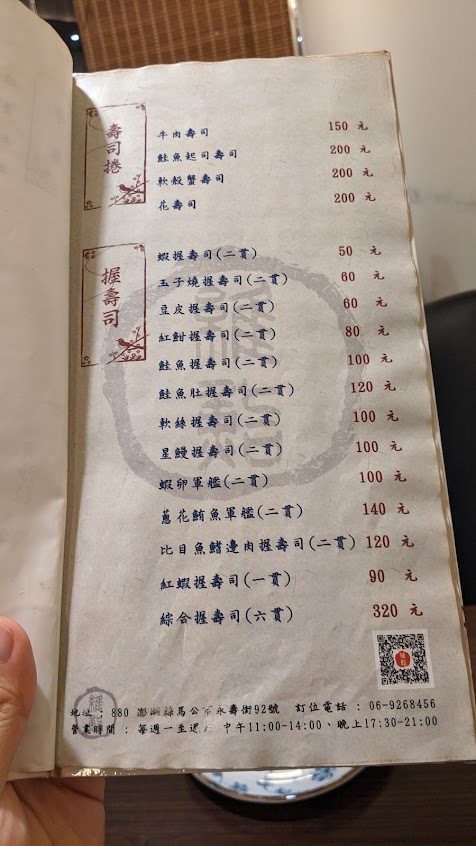 壽司捲
牛肉壽司 150 元
鮭魚起司壽司 200 元
軟殼蟹壽司 200 元
花壽司 200 元
握壽司
蝦握壽司(二貫) 50 元
玉子燒握壽司(二貫) 60 元
豆皮握壽司(二貫) 60 元
紅魽握壽司(二貫) 80 元
鮭魚握壽司(二貫) 100 元
鮭魚肚握壽司(二貫) 120 元
軟絲握壽司(二貫) 100 元
星鰻握壽司(二貫) 100 元
蝦卵軍艦(二貫) 100 元
蔥花鮪魚軍艦(二貫) 140 元
比目魚鰭邊肉握壽司(二貫) 120 元
紅蝦握壽司(一貫) 90 元
綜合握壽司(六貫) 320 元
地址 : 880 澎湖縣馬公市永壽街92號 訂位電話 : 06-9268456
營業時間 : 每週一至週 中午11:00-14:00、晚上17:30-21:00